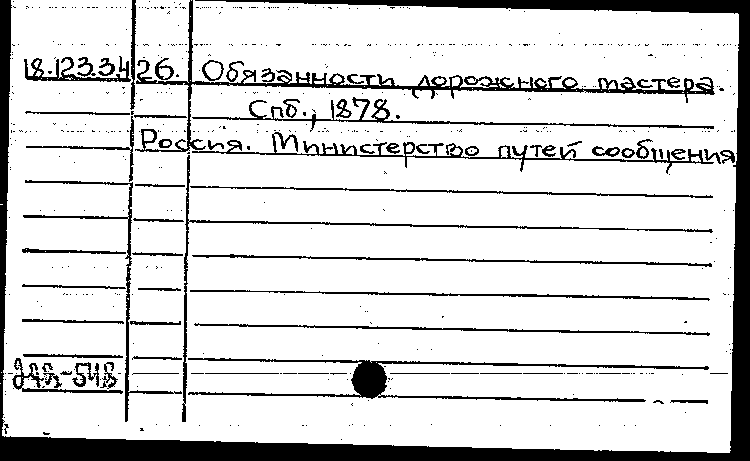 18.123.3.426. Обязанности дорожного мастера.
Спб., 1878.
Россия. Министерство путей сообщения